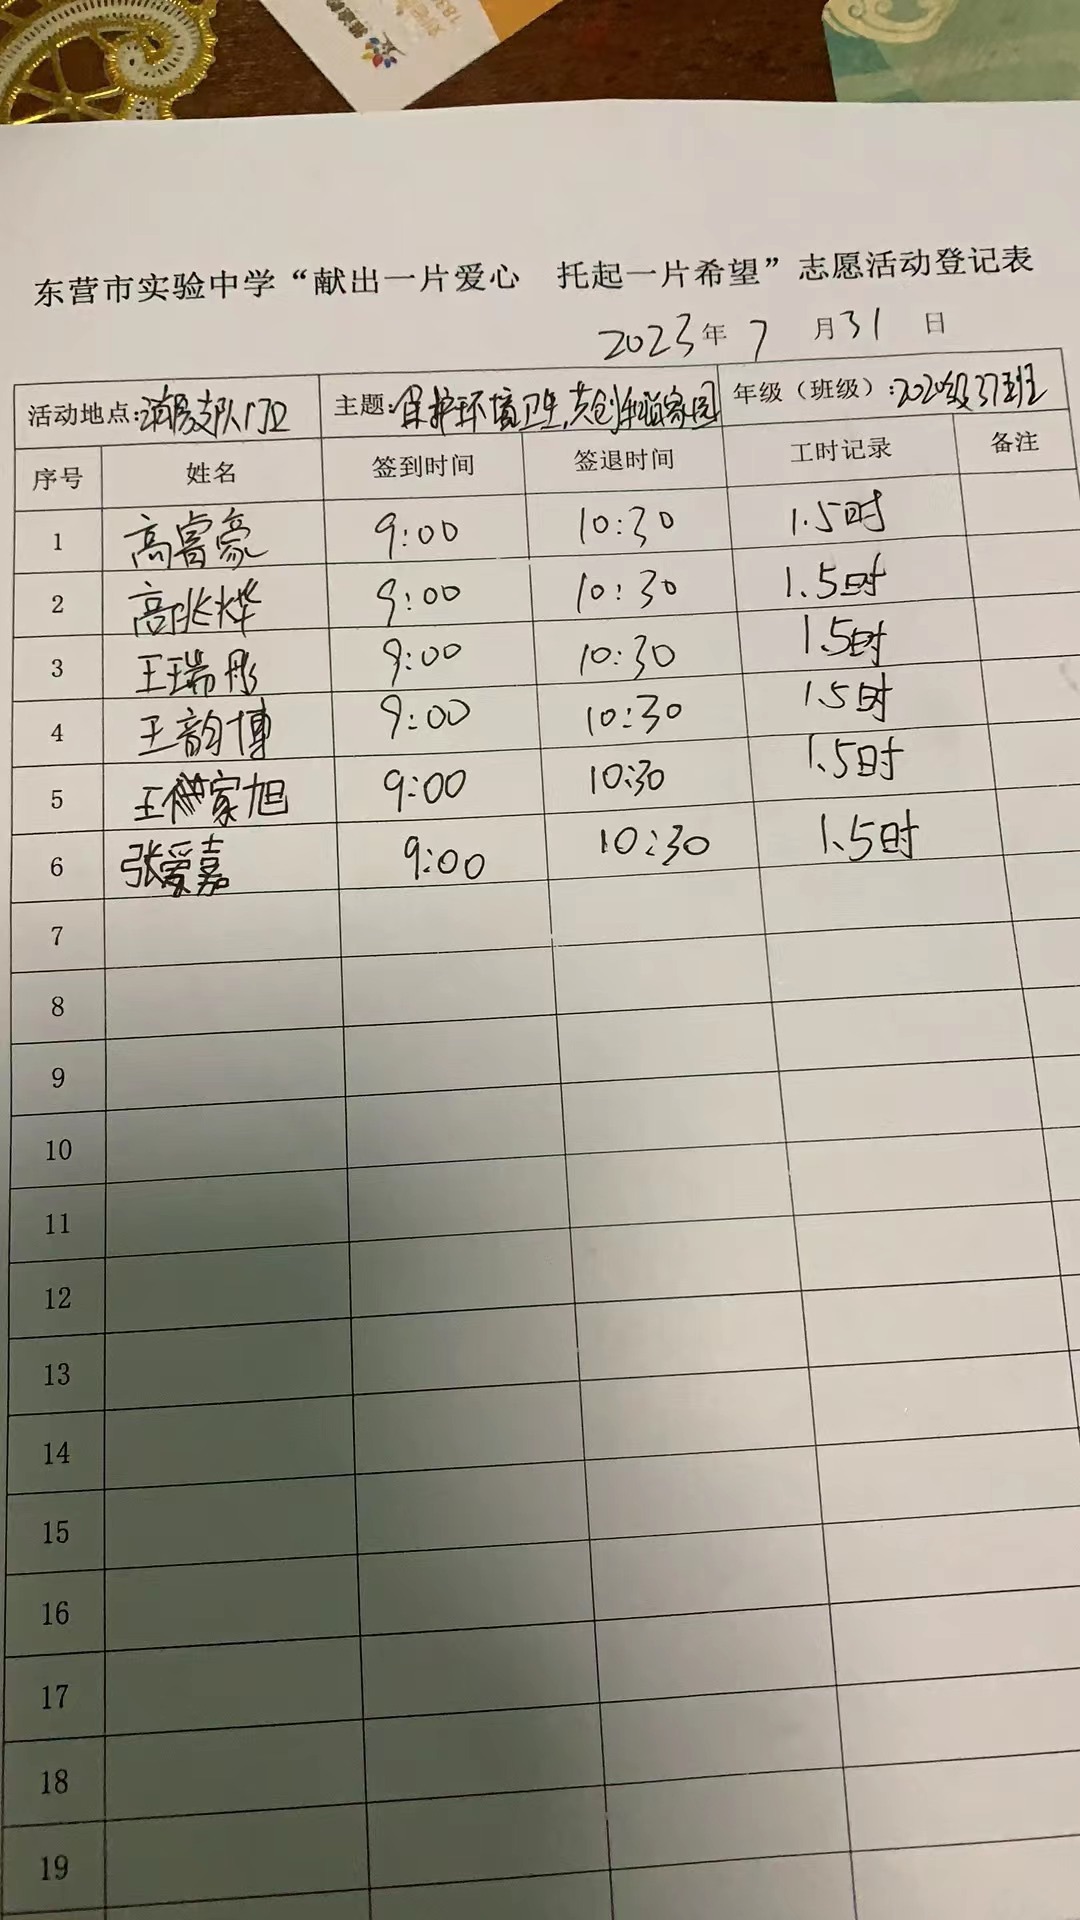 东营市实验中学“献出一片爱心 托起一片希望”志愿活动登记表
2023年 7 月31 日
活动地点:消防支队门卫 主题:保护环境卫生,共创和谐家园 年级（班级）:2020级37班
序号 姓名 签到时间 签退时间 工时记录 备注
1 高睿豪 9:00 10:30 1.5时
2 高兆烨 9:00 10:30 1.5时
3 王瑞彤 9:00 10:30 1.5时
4 王韵博 9:00 10:30 1.5时
5 王家旭 9:00 10:30 1.5时
6 张爱嘉 9:00 10:30 1.5时
7
8
9
10
11
12
13
14
15
16
17
18
19